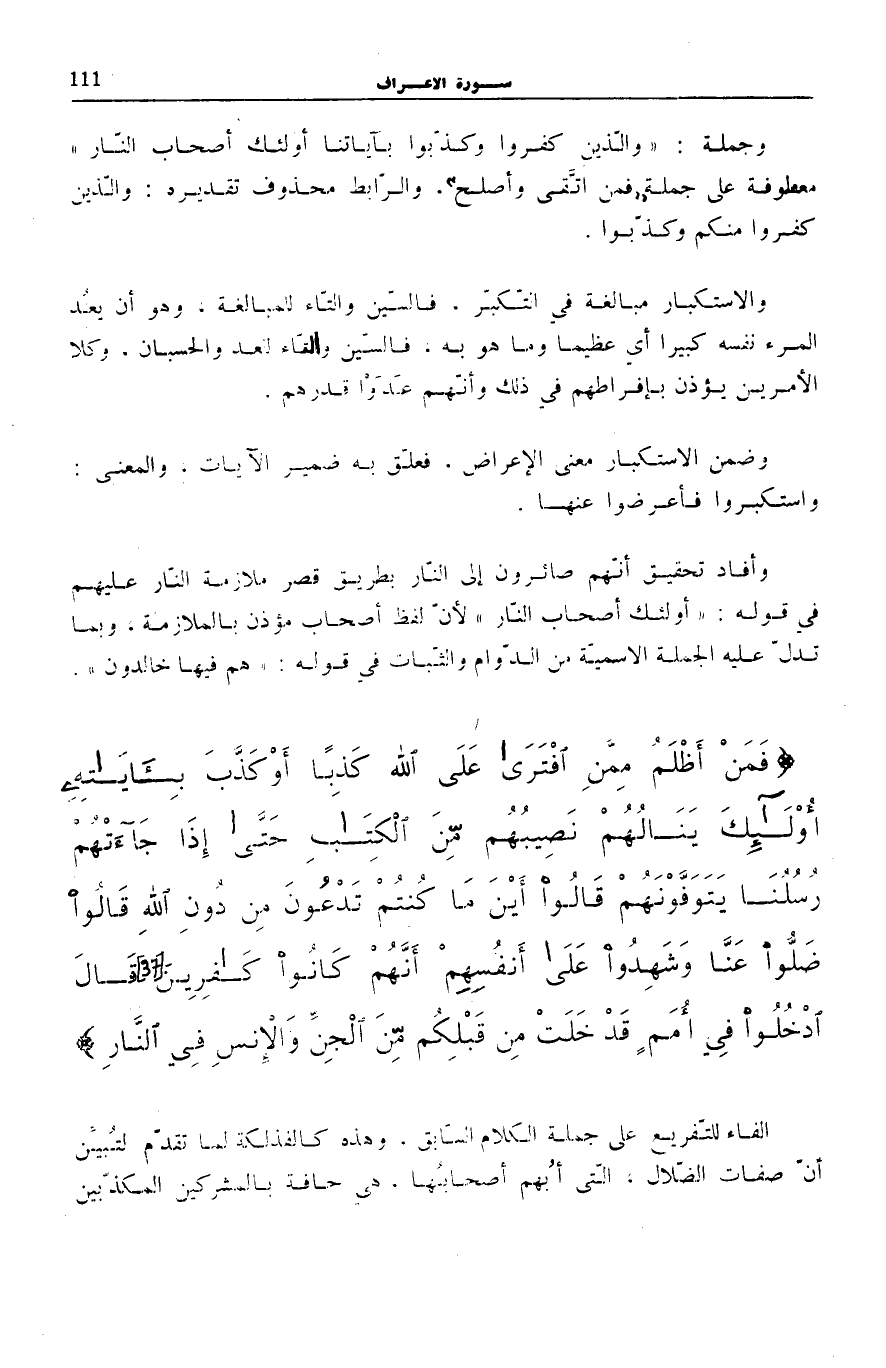 سورة الاعراف 111
وجملة : « والّذين كفروا وكذّبوا بآياتنا أولئك أصحاب النّار »
معطوفة على جملة «فمن اتَّقى وأصلح». والرّابط محذوف تقديره : والّذين
كفروا منكم وكذّبوا .
والاستكبار مبالغة في التّكبّر . فالسّين والتّاء للمبالغة ، وهو أن يعُد
المرء نفسه كبيرا أي عظيما وما هو به ، فالسّين والتّاء لعد والحسبان . وكلا
الأمرين يؤذن بإفراطهم في ذلك وأنّهم عَدَوْا قدرهم .
وضمن الاستكبار معنى الإعراض . فعلّق به ضمير الآيات ، والمعنى :
واستكبروا فأعرضوا عنها .
وأفاد تحقيق أنّهم صائرون إلى النّار بطريق قصر ملازمة النّار عليهم
في قوله : « أولئك أصحاب النّار » لأنّ لفظ أصحاب مؤذن بالملازمة ، وبما
تدلّ عليه الجملة الاسميّة من الدّوام والثّبات في قوله : « هم فيها خالدون » .
﴿ فَمَنْ أَظْلَمُ مِمَّنِ ٱفْتَرَىٰ عَلَى ٱللهِ كَذِبًا أَوْ كَذَّبَ بِـَٔايَـٰتِهِۦ
أُوْلَـٰٓئِكَ يَنَالُهُمْ نَصِيبُهُم مِّنَ ٱلْكِتَـٰبِ حَتَّىٰ إِذَا جَآءَتْهُمْ
رُسُلُنَا يَتَوَفَّوْنَهُمْ قَالُواْ أَيْنَ مَا كُنتُمْ تَدْعُونَ مِن دُونِ ٱللهِ قَالُواْ
ضَلُّواْ عَنَّا وَشَهِدُواْ عَلَىٰ أَنفُسِهِمْ أَنَّهُمْ كَانُواْ كَـٰفِرِينَ [37] قَالَ
ٱدْخُلُواْ فِي أُمَمٍ قَدْ خَلَتْ مِن قَبْلِكُم مِّنَ ٱلْجِنِّ وَٱلْإِنسِ فِي ٱلنَّارِ ﴾
الفاء للتّفريع على جملة الكلام السّابق . وهذه كالفذلكة لما تقدّم لتُبيِّن
أنّ صفات الضّلال ، الّتي أُبهم أصحابُها . هي حافة بالمشركين المكذّبين